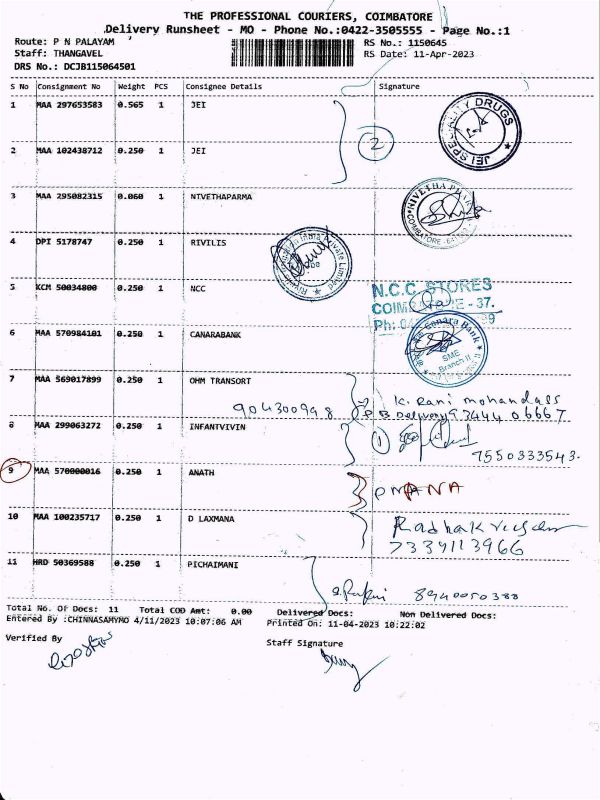 THE PROFESSIONAL COURIERS, COIMBATORE
Delivery Runsheet - MO - Phone No.:0422-3505555 - Page No.:1
Route: P N PALAYAM
RS No.: 1150645
Staff: THANGAVEL
RS Date: 11-Apr-2023
DRS No.: DCJB115064501
S No Consignment No Weight PCS Consignee Details Signature
1 MAA 297653583 0.565 1 JEI
JEI SPECIALITY DRUGS
2
2 MAA 102438712 0.250 1 JEI
3 MAA 295082315 0.060 1 NIVETHAPARMA
NIVETHA
COIMBATORE
4 DPI 5178747 0.250 1 RIVILIS
India Private Limited
5 KCM 50034800 0.250 1 NCC
N.C.C. STORES
COIMBATORE - 37.
Ph:
6 MAA 570984101 0.250 1 CANARABANK
Canara Bank
SME
Branch II
7 MAA 569017899 0.250 1 OHM TRANSORT
K. Rani mohandass
904300948 P.B. Delivery 93444 06667
8 MAA 299063272 0.250 1 INFANTVIVIN
1
7550333543.
9 MAA 570000016 0.250 1 ANATH
10 MAA 100235717 0.250 1 D LAXMANA
7339113966
11 HRD 50369588 0.250 1 PICHAIMANI
8940050388
Total No. Of Docs: 11 Total COD Amt: 0.00 Delivered Docs: Non Delivered Docs:
Entered By :CHINNASAMYMO 4/11/2023 10:07:06 AM Printed On: 11-04-2023 10:22:02
Verified By
Staff Signature